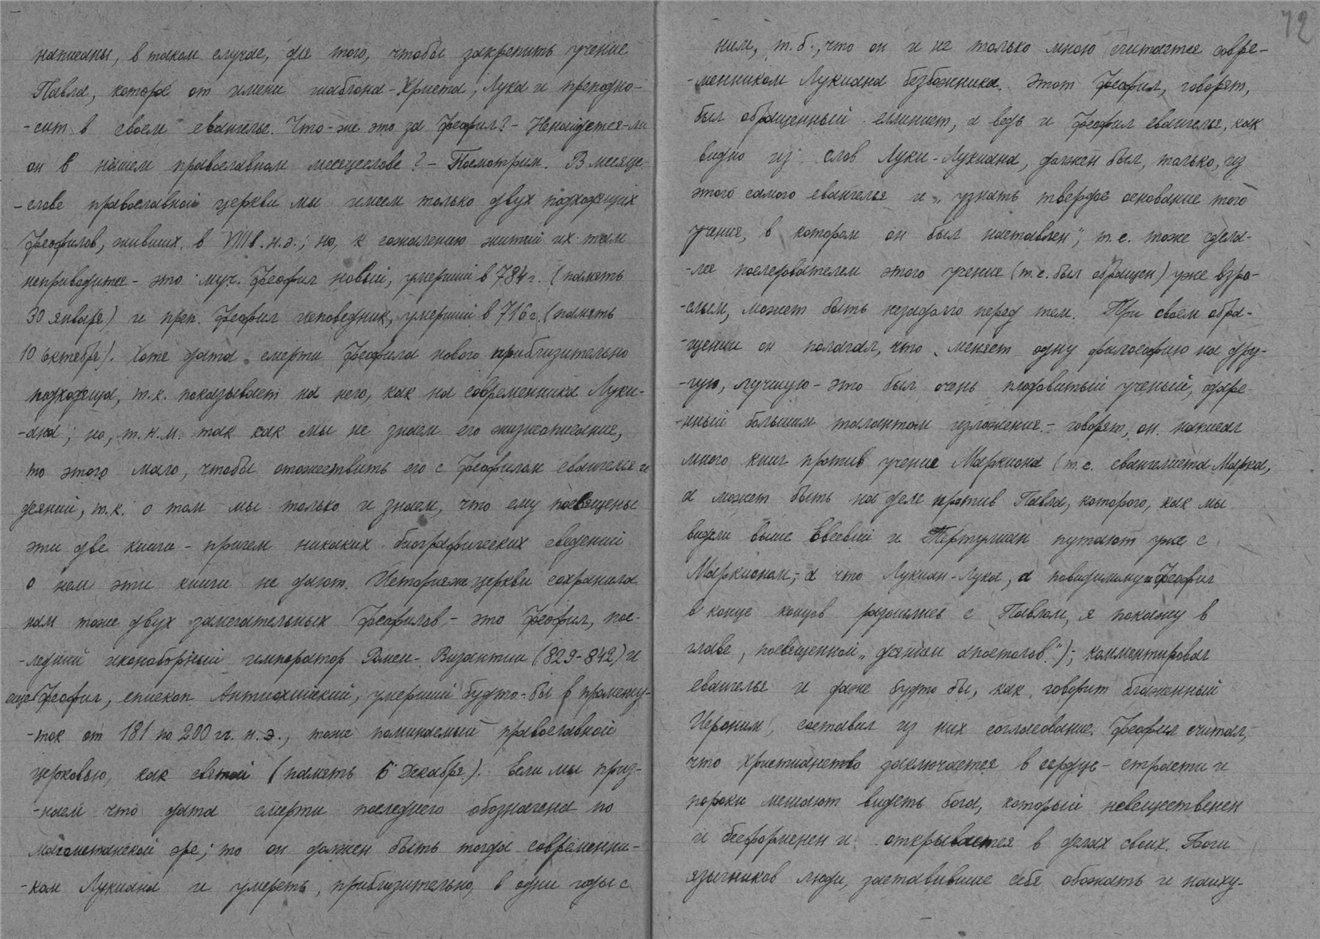 написаны, в таком случае, для того, чтобы закрепить учение
Павла, которое от имени шаблона-Христа, Лука и преподно-
-сит в своем евангелье. Что-же это за Феофил? - Ненайдется-ли
он в нашем православном месяцеслове? - Посмотрим. В месяце-
-слове православной церкви мы имеем только двух подходящих
Феофилов, живших в VIII в. н.э.; но, к сожалению житий их там
неприводится - это муч. Феофил новый, умерший в 784 г. (память
30 января) и преп. Феофил исповедник, умерший в 716 г. (память
10 октября). Хотя дата смерти Феофила нового приблизительно
подходяща, т.к. показывает на него, как на современника Луки-
-ана; но, т.н.м. так как мы не знаем его жизнеописание,
то этого мало, чтобы отожествить его с Феофилом евангелья и
деяний, т.к. о том мы только и знаем, что ему посвящены
эти две книги - причем никаких биографических сведений
о нем эти книги не дают. История церкви сохранила
нам тоже двух замечательных Феофилов - это Феофил, пос-
-ледний иконоборный император Ромеи-Византии (829-842) и
еще Феофил, епископ Антиохийский, умерший будто-бы в промежу-
-ток от 181 по 200 гг. н.э., тоже поминаемый православной
церковью, как святой (память 6 декабря). Если мы приз-
-наем что дата смерти последнего обозначена по
магометанской эре; то он должен быть тогда современни-
-ком Лукиана и умереть, приблизительно, в одни годы с
72
ним, т.б., что он и не только мною считается совре-
-менником Лукиана безбожника. Этот Феофил, говорят,
был обращенный еллинист, а ведь и Феофил евангелья, как
видно из слов Луки-Лукиана, должен был, только, из
этого самого евангелья и „узнать твердое основание того
учения, в котором он был наставлен", т.е. тоже сдела-
-лся последователем этого учения (т.е. был обращен) уже взро-
-слым, может быть незадолго перед тем. При своем обра-
-щении он полагал, что меняет одну философию на дру-
-гую, лучшую - это был очень плодовитый ученый, одаре-
-нный большим талантом изложения - говорят, он написал
много книг против учения Маркиона (т.е. евангелиста Марка,
а может быть на деле против Павла, которого, как мы
видели выше Евсевий и Тертулиан путают уже с
Маркионом; - а что Лукиан-Лука, а повидимому и Феофил
в конце концов разошлись с Павлом, я покажу в
главе, посвещенной „деяниям апостолов."); комментировал
евангелья и даже будто бы, как говорит блаженный
Иероним, составил из них согласование. Феофил считал,
что христианство заключается в сердце - страсти и
пороки мешают видеть бога, который невещественен
и бесформенен и открывается в делах своих. Боги
язычников люди, заставившие себя обожать и наиху-